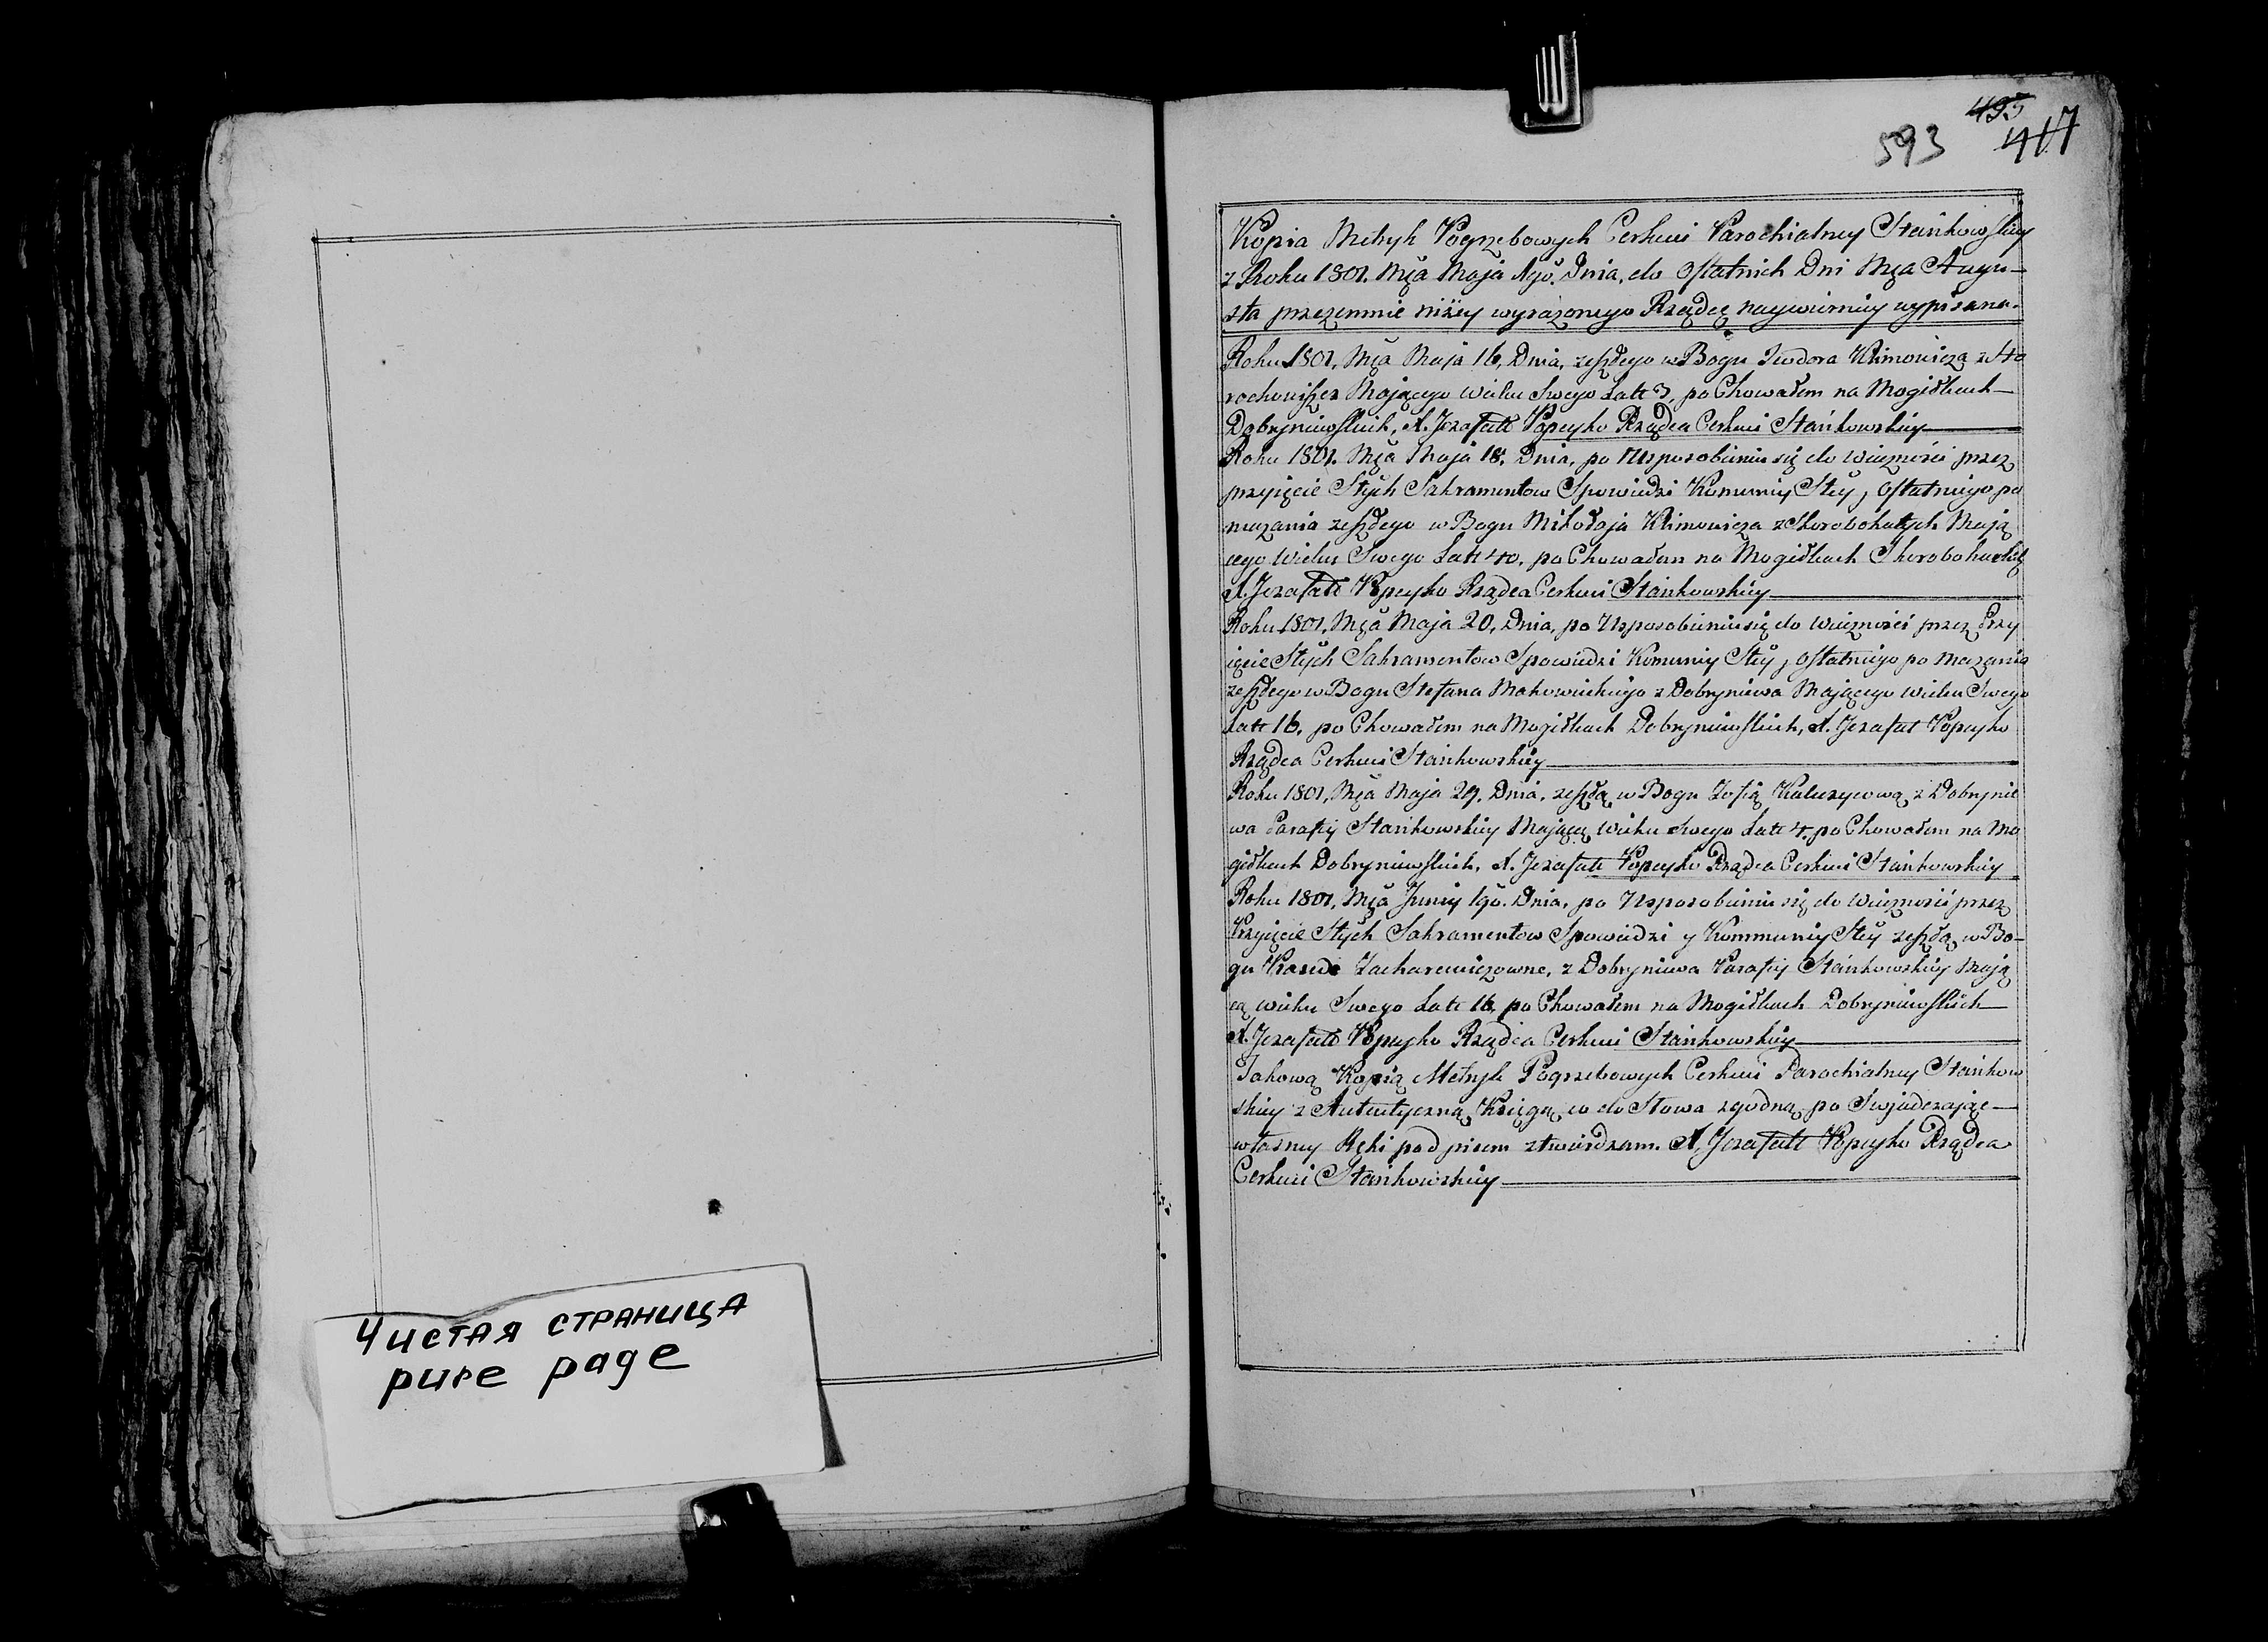 Чистая страница
pure page
495
593 417
Kopia Metryk Pogrzebowych Cerkwi Parochialney Stańkowskiey
z Roku 1801. Mca Maja 1go. Dnia, do Ostatnich Dni Mca Augu-
sta przezemnie niżey wyrażonego Rządcę naywierniey wypisana.
Roku 1801, Mca Maja 16, Dnia, zeszłego w Bogu Teodora Klimowicza z
Mającego Wieku Swego Latt 3, po Chowałem na Mogiłkach
Dobryniewskich, X. Jozafatt Kopeyko Rządca Cerkwi Stańkowskiey
Roku 1801. Mca Maja 18. Dnia, po Usposobieniu się do Wieczności przez
przyięcie Stych Sakramentow Spowiedzi Komuniy Stey, Ostatniego po
mazania zeszłego w Bogu Mikołaja Klimowicza z Skorobohatych Mają
cego Wieku Swego Latt 40, po Chowałem na Mogiłkach
X. Jozafatt Kopeyko Rządca Cerkwi Stańkowskiey
Roku 1801, Mca Maja 20, Dnia, po Usposobieniu się do Wieczności przez Przy
ięcie Stych Sakramentow Spowiedzi Komuniy Stey, Ostatniego po Mazania
zeszłego w Bogu Stefana Makowieckiego z Dobryniewa Mającego Wieku Swego
Latt 16, po Chowałem na Mogiłkach Dobryniewskich, X. Jozafat Kopeyko
Rządca Cerkwi Stańkowskiey
Roku 1801, Mca Maja 29. Dnia, zeszłą w Bogu Zofią z Dobrynie
wa Parafiy Stańkowskiey Mającą Wieku Swego Latt 4. po Chowałem na Mo
giłkach Dobryniewskich, X. Jozafatt Kopeyko Rządca Cerkwi Stańkowskiey
Roku 1801, Mca Juniy 1go. Dnia, po Usposobieniu się do Wieczności przez
Przyięcie Stych Sakramentow Spowiedzi y Kommuniy Stey zeszłą w Bo-
gu Zacharewiczowne, z Dobryniewa Parafiy Stańkowskiey Mają
cą wieku Swego Latt 16, po Chowałem na Mogiłkach Dobryniewskich
X. Jozafatt Kopeyko Rządca Cerkwi Stańkowskiey
Takową Kopią Metryk Pogrzebowych Cerkwi Parochialney Stańkow
skiey z Autentyczną Księgą co do Słowa zgodną po Swjadczając
własney Ręki pod pisem ztwierdzam. X. Jozafatt Kopeyko Rządca
Cerkwi Stańkowskiey